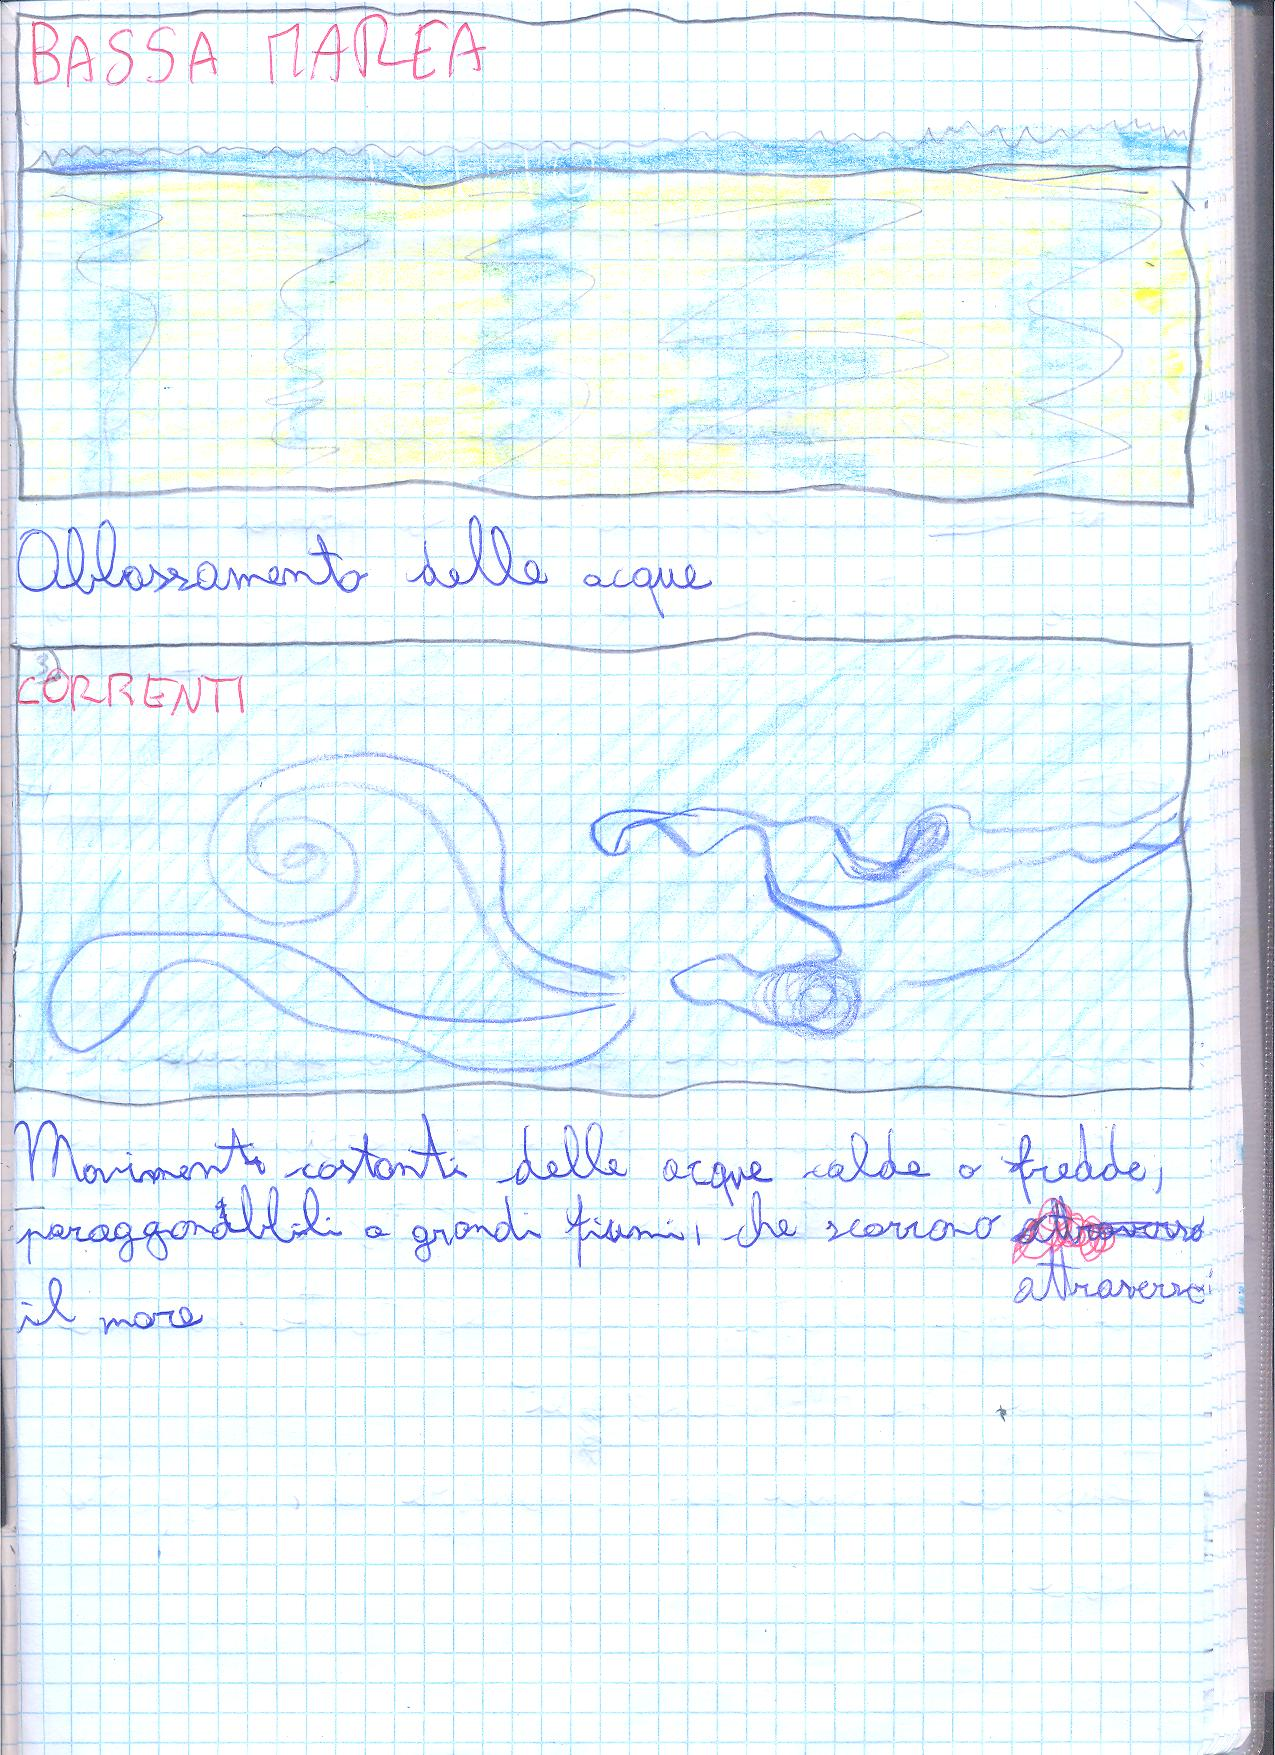 BASSA MAREA
Abbassamento delle acque
3)
CORRENTI
Movimenti costanti delle acque calde o fredde,
paraggonabbili a grandi fiumi, che scorrono attraverso
attraverso
il mare